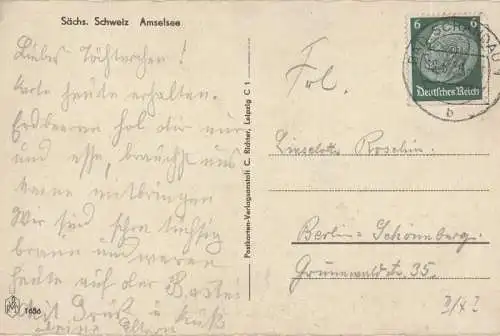 Sächs. Schweiz Amselsee
Liebes Töchterchen!
Karte heute erhalten.
Erdbeeren hol dir nur
und esse, brauchst uns
keine mitbringen
Wir sind schon tüchtig
braun und waren
heute auf der Bastei
Mit Gruß u Kuß
deine Eltern
1686
Postkarten-Verlagsanstalt C. Richter, Leipzig C 1
6 6
Deutsches Reich
BAD SCHANDAU 1
b
Frl.
Roschin
Berlin-Schöneberg
Grunewaldstr. 35.